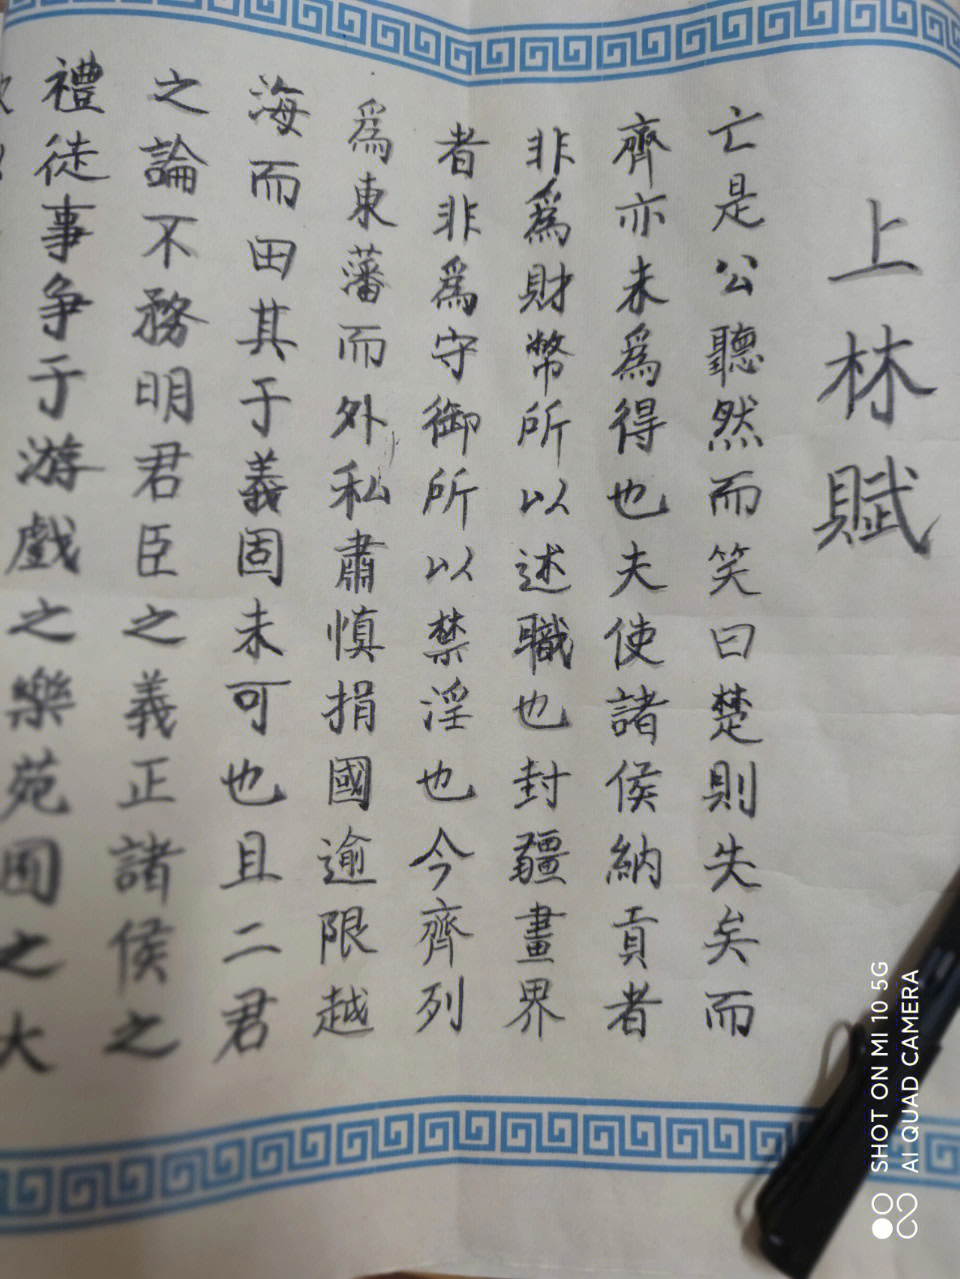 上林賦
亡是公聽然而笑曰楚則失矣而
齊亦未爲得也夫使諸侯納貢者
非爲財幣所以述職也封疆畫界
者非爲守御所以禁淫也今齊列
爲東藩而外私肅慎捐國逾限越
海而田其于義固未可也且二君
之論不務明君臣之義正諸侯之
禮徒事争于游戲之樂苑囿之大
SHOT ON MI 10 5G
AI QUAD CAMERA